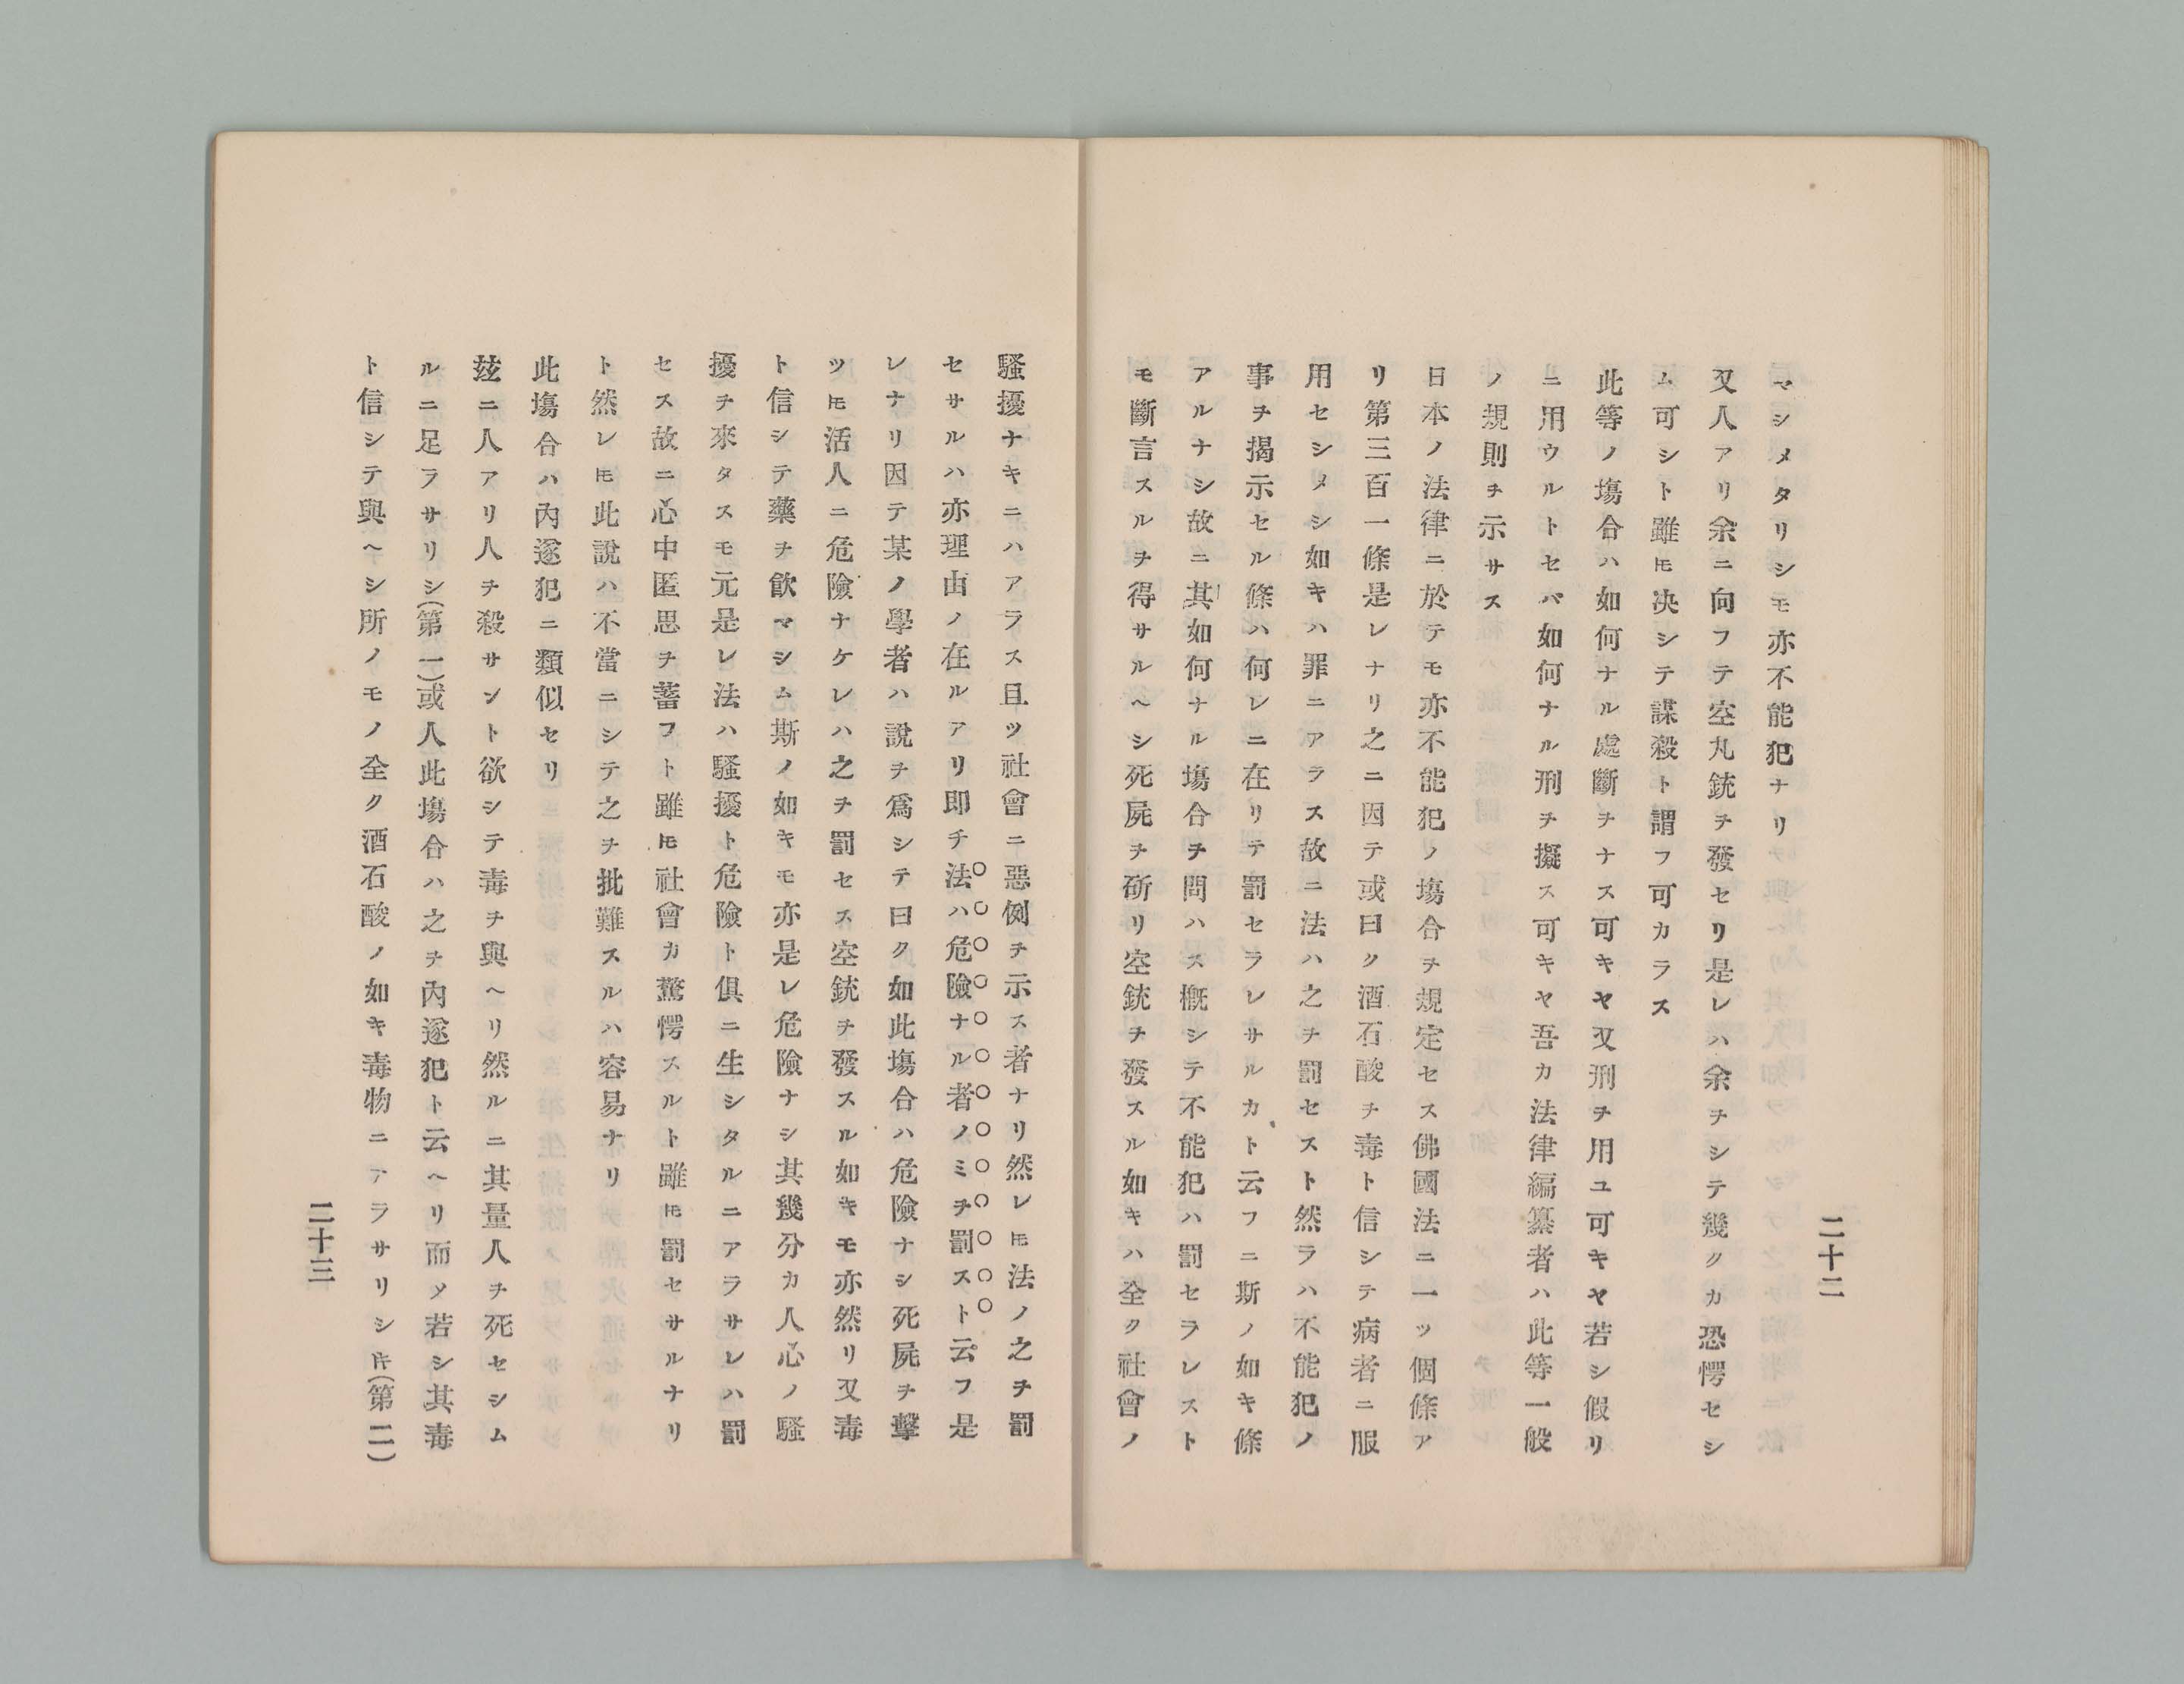 マシメタリシモ亦不能犯ナリ
又人アリ余ニ向フテ空丸銃ヲ發セリ是レハ余ヲシテ幾クカ恐愕セシ
ム可シト雖𪜈决シテ謀殺ト謂フ可カラス
此等ノ塲合ハ如何ナル處斷ヲナス可キヤ又刑ヲ用ユ可キヤ若シ假リ
ニ用ウルトセバ如何ナル刑ヲ擬ス可キヤ吾カ法律編纂者ハ此等一般
ノ規則ヲ示サス
日本ノ法律ニ於テモ亦不能犯ノ塲合ヲ規定セス佛國法ニ一ツ個條ア
リ第三百一條是レナリ之ニ因テ或曰ク酒石酸ヲ毒ト信シテ病者ニ服
用セシメシ如キハ罪ニアラス故ニ法ハ之ヲ罰セスト然ラハ不能犯ノ
事ヲ揭示セル條ハ何レニ在リテ罰セラレサルカト云フニ斯ノ如キ條
アルナシ故ニ其如何ナル塲合ヲ問ハス槪シテ不能犯ハ罰セラレスト
モ斷言スルヲ得サルヘシ死屍ヲ斫リ空銃ヲ發スル如キハ全ク社會ノ
二十二
騷擾ナキニハアラス且ツ社會ニ惡例ヲ示ス者ナリ然レ𪜈法ノ之ヲ罰
セサルハ亦理由ノ在ルアリ即チ法ハ危險ナル者ノミヲ罰スト云フ是
レナリ因テ某ノ學者ハ說ヲ爲シテ曰ク如此塲合ハ危險ナシ死屍ヲ擊
ツ𪜈活人ニ危險ナケレハ之ヲ罰セス空銃ヲ發スル如キモ亦然リ又毒
ト信シテ藥ヲ飮マシム斯ノ如キモ亦是レ危險ナシ其幾分カ人心ノ騷
擾ヲ來タスモ元是レ法ハ騷擾ト危險ト俱ニ生シタルニアラサレハ罰
セス故ニ心中匿思ヲ蓄フト雖𪜈社會カ驚愕スルト雖𪜈罰セサルナリ
ト然レ𪜈此說ハ不當ニシテ之ヲ批難スルハ容易ナリ
此塲合ハ內遂犯ニ類似セリ
玆ニ人アリ人ヲ殺サント欲シテ毒ヲ與ヘリ然ルニ其量人ヲ死セシム
ルニ足ラサリシ(第一)或人此塲合ハ之ヲ內遂犯ト云ヘリ而メ若シ其毒
ト信シテ與ヘシ所ノモノ全ク酒石酸ノ如キ毒物ニアラサリシ𪜈(第二)
二十三